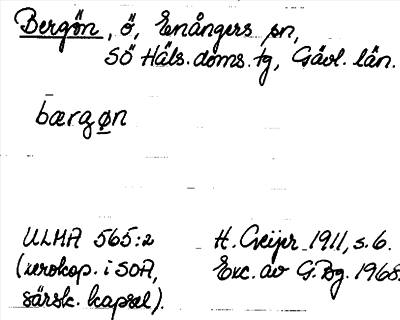 Bergön, ö, Enångers sn,
SÖ Häls. doms. tg, Gävl. län.
bærgøn
ULMA 565:2
(xerokop. i SOA,
särsk. kapsel).
H. Geijer 1911, s. 6.
Exc. av G. Bg. 1968.